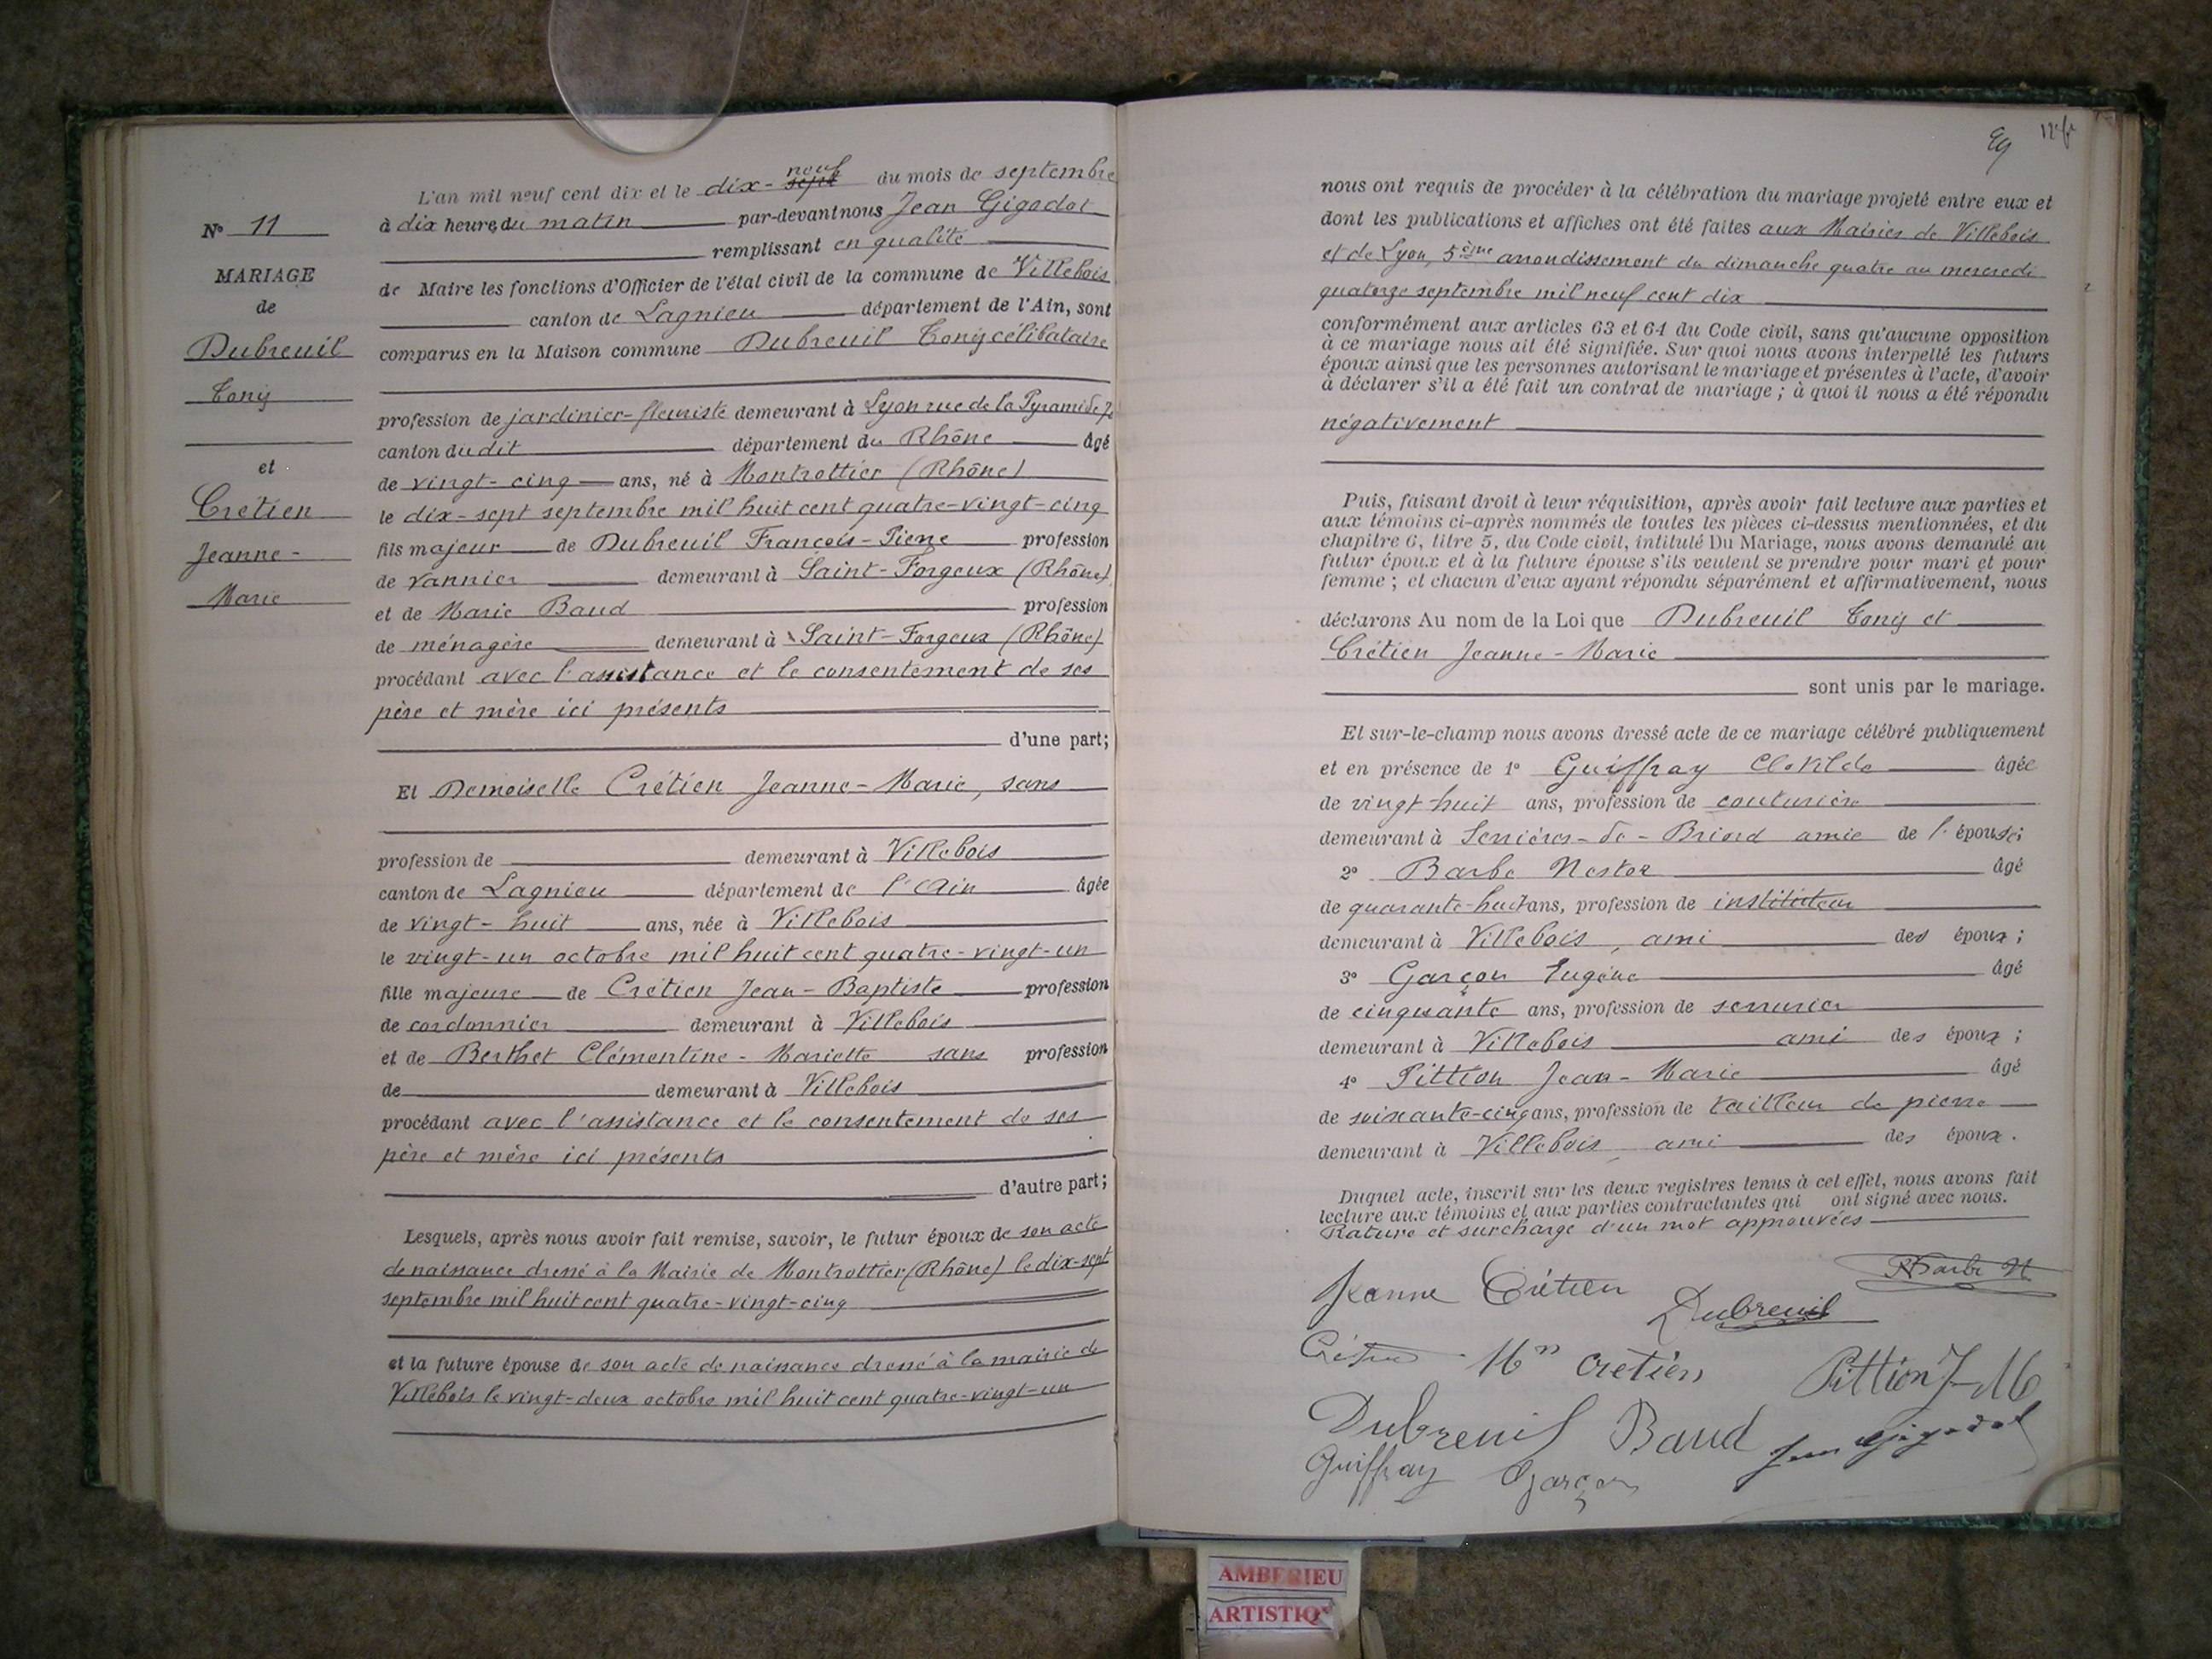 N° 11
MARIAGE
de
Dubreuil
Tony
et
Crétien
Jeanne-
Marie
L'an mil neuf cent dix et le dix-sept neuf du mois de septembre
à dix heures du matin par-devant nous Jean Gigodot
remplissant en qualité
de Maire les fonctions d'Officier de l'état civil de la commune de Villebois
canton de Lagnieu département de l'Ain, sont
comparus en la Maison commune Dubreuil Tony célibataire
profession de jardinier-fleuriste demeurant à Lyon rue de la Pyramide
canton dudit département du Rhône âgé
de vingt-cinq ans, né à Montrottier (Rhône)
le dix-sept septembre mil huit cent quatre-vingt-cinq
fils majeur de Dubreuil François-Pierre profession
de vannier demeurant à Saint-Forgeux (Rhône)
et de Marie Baud profession
de ménagère demeurant à Saint-Forgeux (Rhône)
procédant avec l'assistance et le consentement de ses
père et mère ici présents
d'une part;
Et Demoiselle Crétien Jeanne-Marie, sans
profession de demeurant à Villebois
canton de Lagnieu département de l'Ain âgée
de vingt-huit ans, née à Villebois
le vingt-un octobre mil huit cent quatre-vingt-un
fille majeure de Crétien Jean-Baptiste profession
de cordonnier demeurant à Villebois
et de Berthet Clémentine-Mariette sans profession
de demeurant à Villebois
procédant avec l'assistance et le consentement de ses
père et mère ici présents
d'autre part;
Lesquels, après nous avoir fait remise, savoir, le futur époux de son acte
de naissance dressé à la Mairie de Montrottier (Rhône) le dix-sept
septembre mil huit cent quatre-vingt-cinq
et la future épouse de son acte de naissance dressé à la mairie de
Villebois le vingt-deux octobre mil huit cent quatre-vingt-un
nous ont requis de procéder à la célébration du mariage projeté entre eux et
dont les publications et affiches ont été faites aux Mairies de Villebois
et de Lyon, 5ème arrondissement du dimanche quatre au mercredi
quatorze septembre mil neuf cent dix
conformément aux articles 63 et 64 du Code civil, sans qu'aucune opposition
à ce mariage nous ait été signifiée. Sur quoi nous avons interpellé les futurs
époux ainsi que les personnes autorisant le mariage et présentes à l'acte, d'avoir
à déclarer s'il a été fait un contrat de mariage; à quoi il nous a été répondu
négativement
Puis, faisant droit à leur réquisition, après avoir fait lecture aux parties et
aux témoins ci-après nommés de toutes les pièces ci-dessus mentionnées, et du
chapitre 6, titre 5, du Code civil, intitulé Du Mariage, nous avons demandé au
futur époux et à la future épouse s'ils veulent se prendre pour mari et pour
femme; et chacun d'eux ayant répondu séparément et affirmativement, nous
déclarons Au nom de la Loi que Dubreuil Tony et
Crétien Jeanne-Marie
sont unis par le mariage.
Et sur-le-champ nous avons dressé acte de ce mariage célébré publiquement
et en présence de 1° Guiffray Clotilde âgée
de vingt-huit ans, profession de couturière
demeurant à Serrières-de-Briord amie de l'épouse;
2° Barbe Nestor âgé
de quarante-huit ans, profession de instituteur
demeurant à Villebois, ami des époux;
3° Garçon Eugène âgé
de cinquante ans, profession de serrurier
demeurant à Villebois ami des époux;
4° Pittion Jean-Marie âgé
de soixante-cinq ans, profession de tailleur de pierre
demeurant à Villebois ami des époux.
Duquel acte, inscrit sur les deux registres tenus à cet effet, nous avons fait
lecture aux témoins et aux parties contractantes qui ont signé avec nous.
Rature et surcharge d'un mot approuvées
Jeanne Crétien Dubreuil Barbe N
Crétien Mme Crétien Pittion J-M
Dubreuil Baud Jean Gigodot
Guiffray Garçon
AMBERIEU
ARTISTIQ